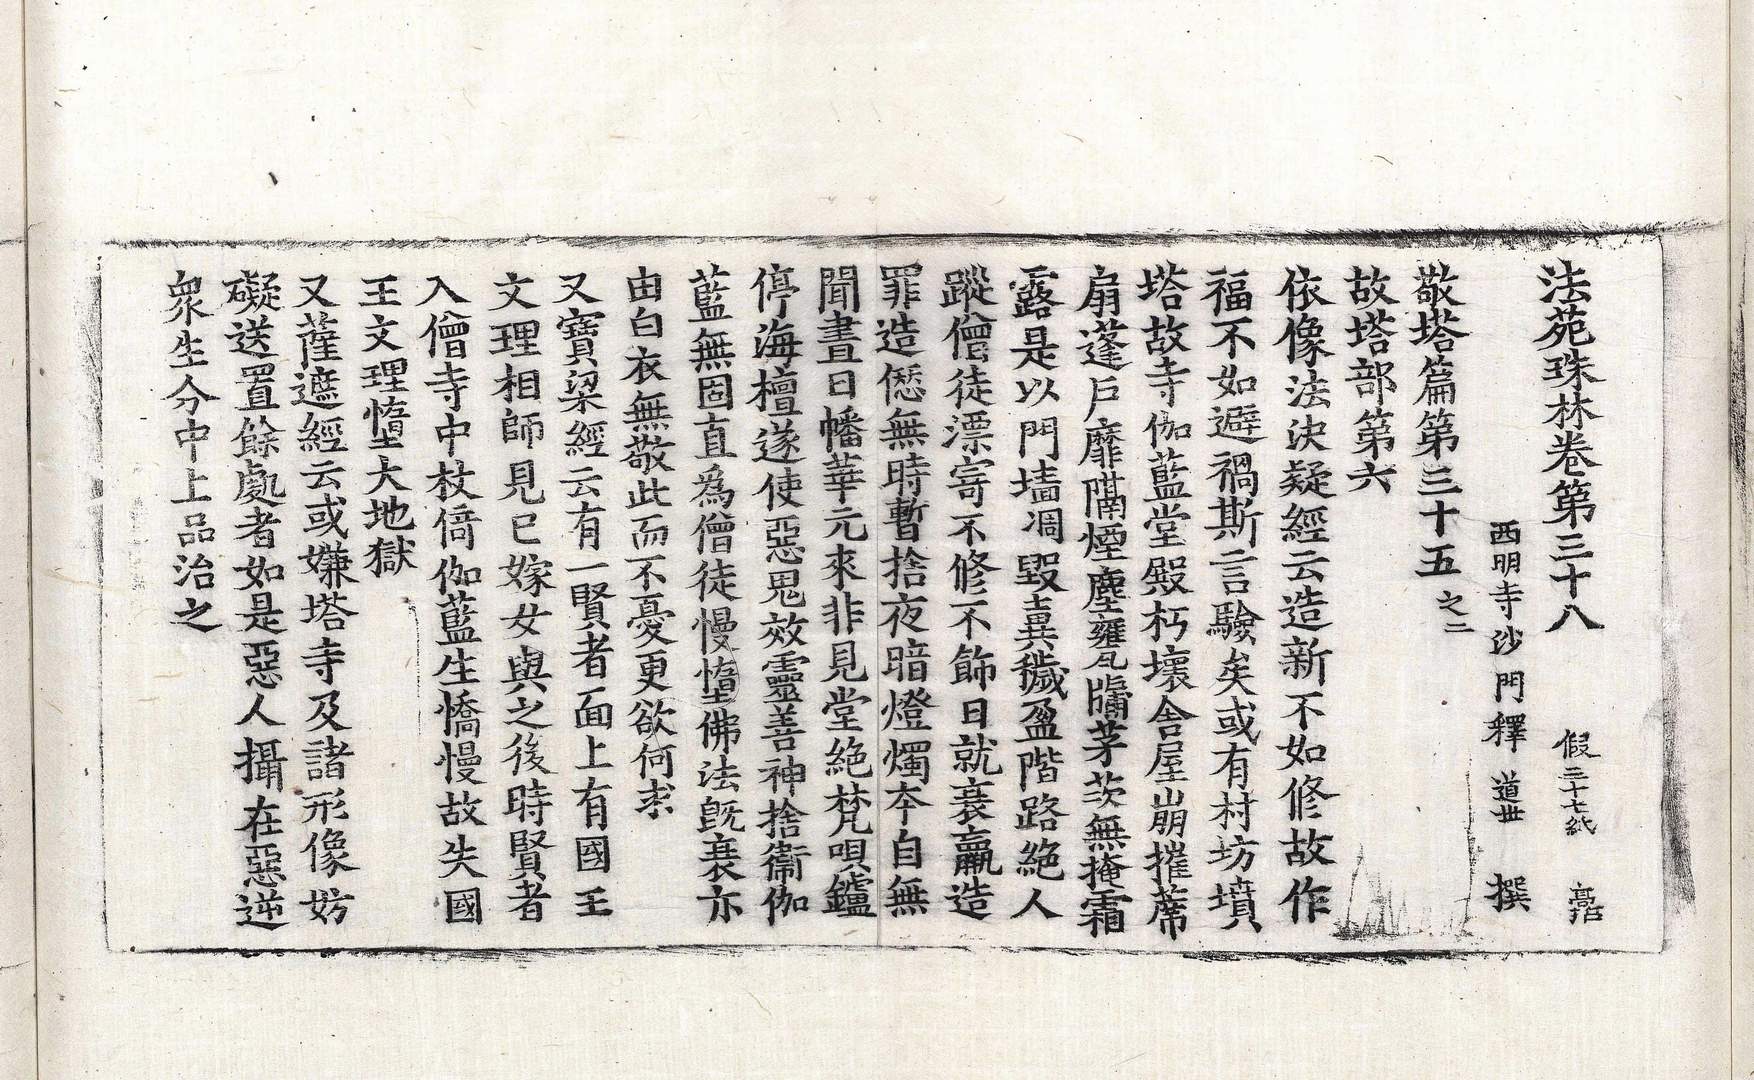 法苑珠林卷第三十八 假 三十七紙
西明寺沙門釋 道世 撰
敬塔篇第三十五 之二
故塔部第六
依像法決疑經云造新不如修故作
福不如避禍斯言驗矣或有村坊墳
塔故寺伽藍堂殿朽壞舍屋崩摧蓆
扇蓬戶靡隔煙塵甕瓦牖茅茨無掩霜
露是以門墻凋毀糞穢盈階路絕人
蹤僧徒漂寄不修不飾日就衰羸造
罪造愆無時暫捨夜暗燈燭本自無
聞晝日幡華元來非見堂絕梵唄鑪
停海檀遂使惡鬼效靈善神捨衛伽
藍無固直為僧徒慢墮佛法既衰亦
由白衣無敬此而不憂更欲何求
又寶梁經云有一賢者面上有國王
文理相師見已嫁女與之後時賢者
入僧寺中杖倚伽藍生憍慢故失國
王文理墮大地獄
又薩遮經云或嫌塔寺及諸形像妨
礙送置餘處者如是惡人攝在惡逆
眾生分中上品治之